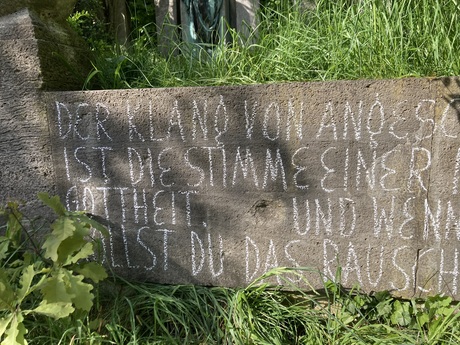 DER KLANG VON ANGESC
IST DIE STIMME EINER
GOTTHEIT, UND WENN
DU DAS RAUSCH